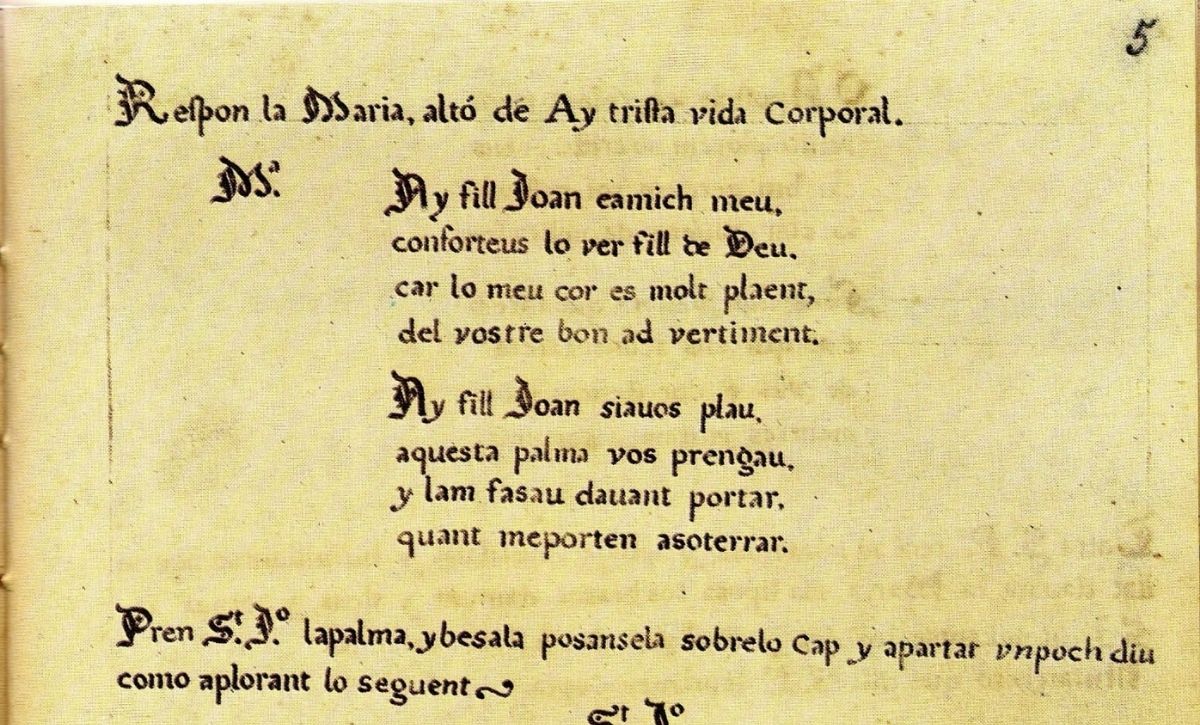 5
Reſpon la Maria, altó de Ay triſta vida Corporal.
Mª.
Ay fill Joan eamich meu,
conforteus lo ver fill de Deu.
car lo meu cor es molt plaent,
del vostre bon ad vertiment.
Ay fill Joan siauos plau,
aquesta palma vos prengau,
y lam fasau dauant portar,
quant meporten asoterrar.
Pren S.ᵗ J.º lapalma, ybesala posansela sobrelo Cap y apartat vnpoch diu
como aplorant lo seguent
S.ᵗ J.º